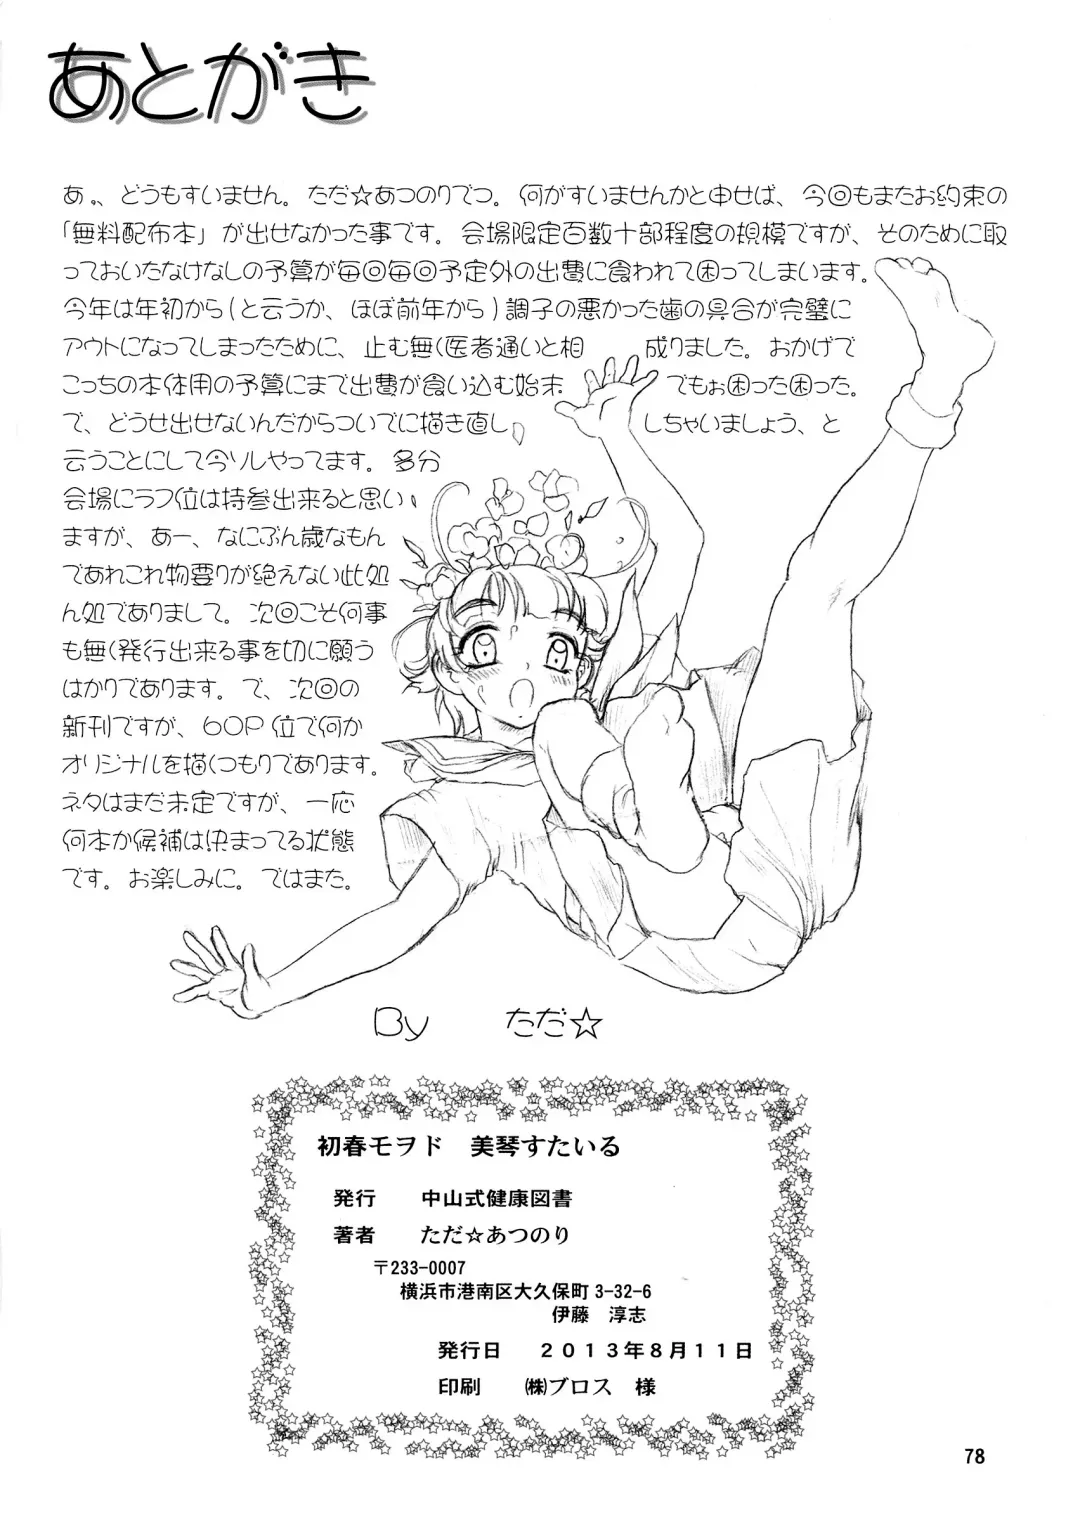 あとがき
あ、、どうもすいません。ただ☆あつのりでつ。何がすいませんかと申せば、今回もまたお約束の
「無料配布本」が出せなかった事です。会場限定百数十部程度の規模ですが、そのために取
っておいたなけなしの予算が毎回毎回予定外の出費に食われて困ってしまいます。
今年は年初から(と云うか、ほぼ前年から)調子の悪かった歯の具合が完璧に
アウトになってしまったために、止む無く医者通いと相成りました。おかげで
こっちの本体用の予算にまで出費が食い込む始末でもぉ困った困った。
で、どうせ出せないんだからついでに描き直ししちゃいましょう、と
云うことにして今ソレやってます。多分
会場にラフ位は持参出来ると思い
ますが、あー、なにぶん歳なもん
であれこれ物要りが絶えない此処
ん処でありまして。次回こそ何事
も無く発行出来る事を切に願う
ばかりであります。で、次回の
新刊ですが、60P位で何か
オリジナルを描くつもりであります。
ネタはまだ未定ですが、一応
何本か候補は決まってる状態
です。お楽しみに。ではまた。
By ただ☆
初春モヲド 美琴すたいる
発行 中山式健康図書
著者 ただ☆あつのり
〒233-0007
横浜市港南区大久保町3-32-6
伊藤 淳志
発行日 2013年8月11日
印刷 ㈱ブロス 様
78